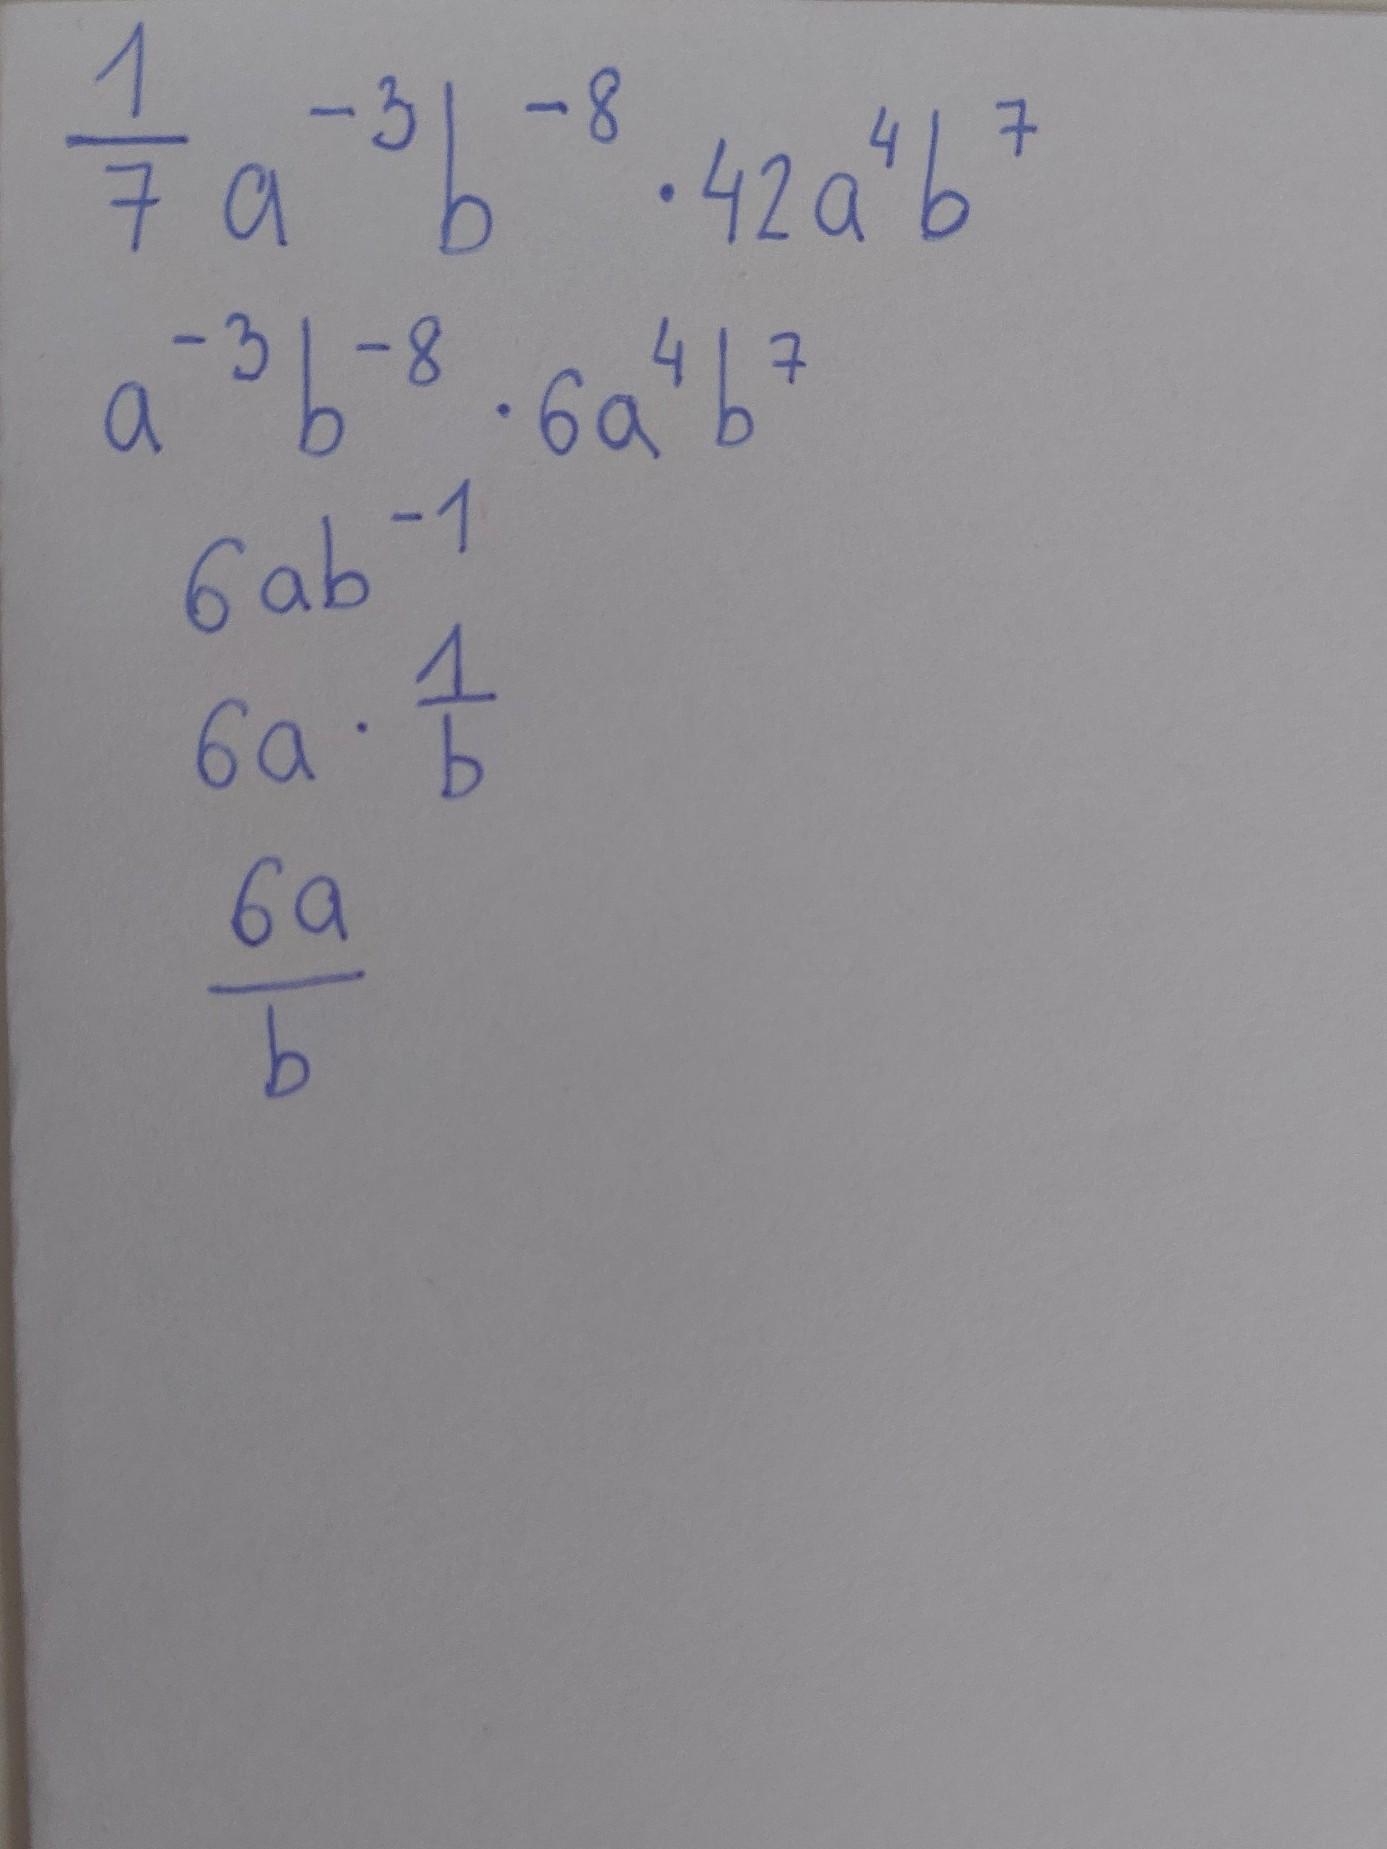 1/7 a^-3 b^-8 · 42a^4 b^7
a^-3 b^-8 · 6a^4 b^7
6ab^-1
6a · 1/b
6a/b